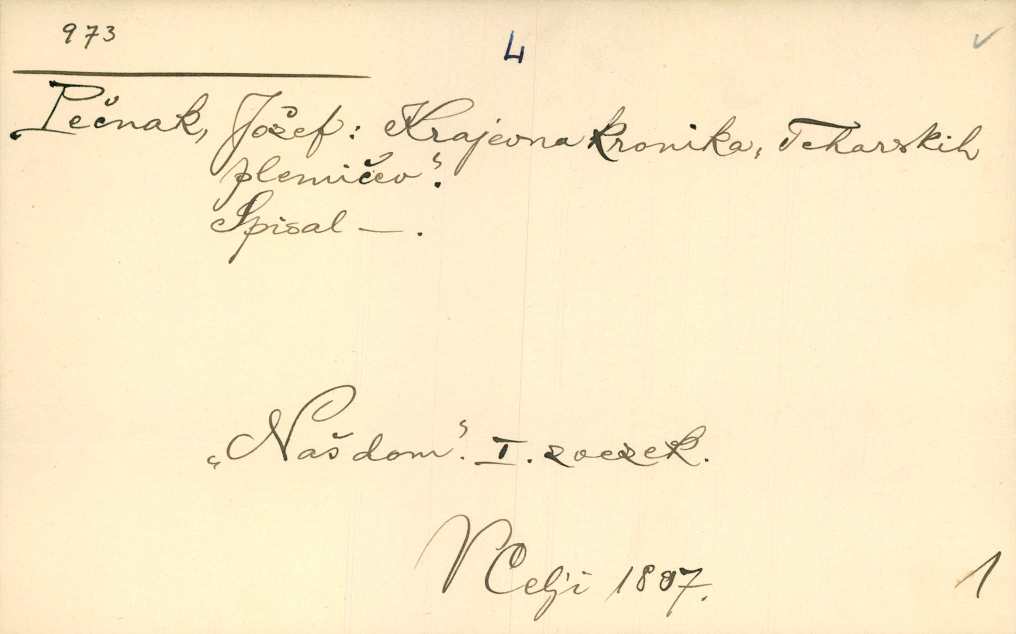 973
4
Pečnak, Jožef: Krajevna kronika „Teharskih
plemičev“.
Spisal — .
„Naš dom“. I. zvezek.
V Celji 1887.
1